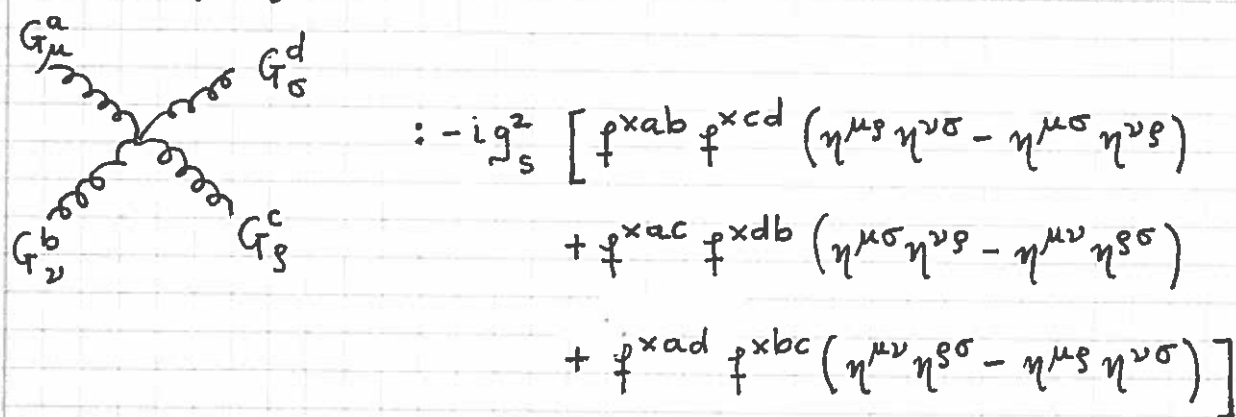 G^a_μ
G^d_σ
: -i g_s^2 [ f^{xab} f^{xcd} (η^{μρ} η^{νσ} - η^{μσ} η^{νρ})
G^b_ν G^c_ρ + f^{xac} f^{xdb} (η^{μσ} η^{νρ} - η^{μν} η^{ρσ})
+ f^{xad} f^{xbc} (η^{μν} η^{ρσ} - η^{μρ} η^{νσ}) ]